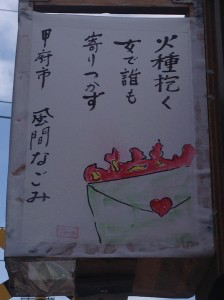 火種抱く
女で誰も
寄りつかず
甲府市 風間なごみ